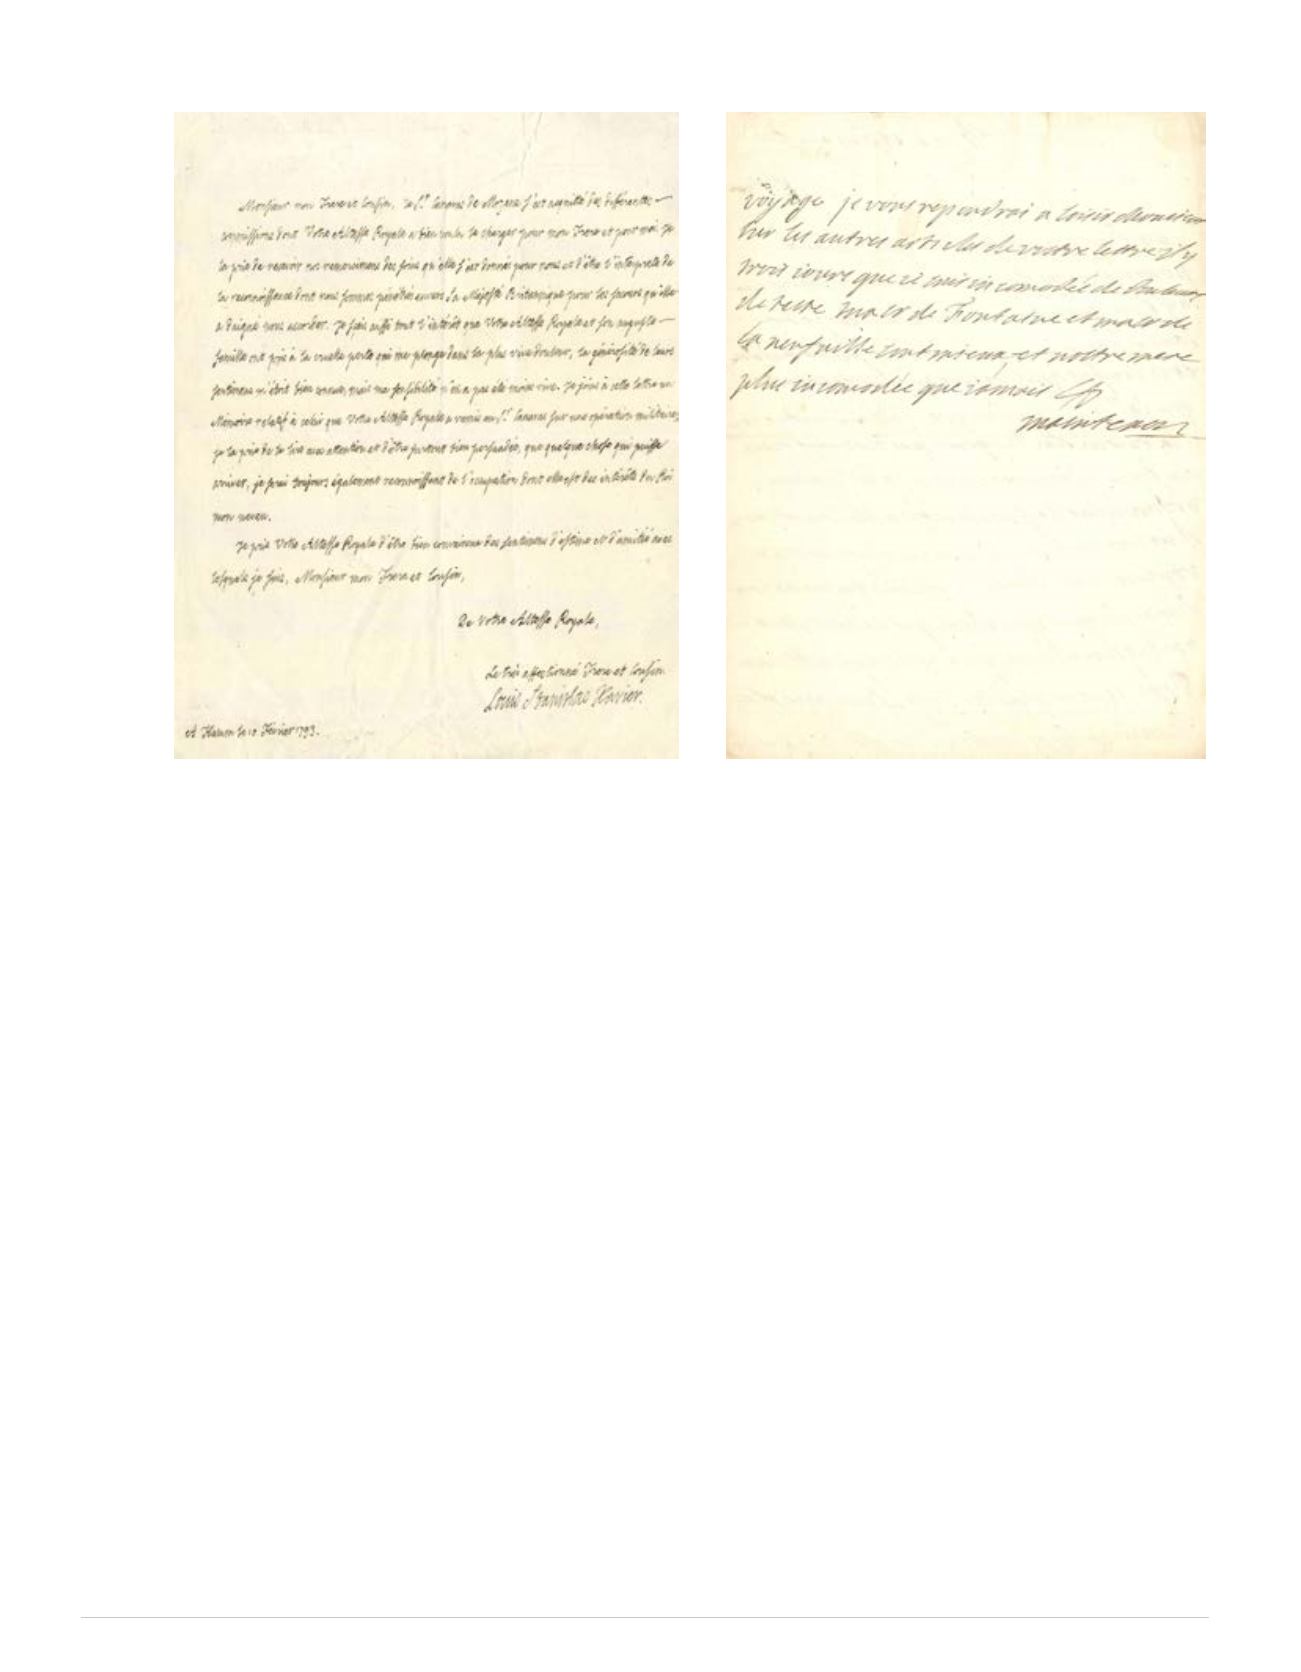 Monsieur mon Frere et Cousin, le Sr. de s'est acquitté des différentes
commissions dont Votre Altesse Royale a bien voulu le charger pour mon Frere et pour moi. Je
la prie de recevoir nos remercimens des soins qu'elle s'est donnés pour nous et d'être l'interprete de
la reconnoissance dont nous sommes pénétrés envers Sa Majesté Britannique pour les secours qu'elle
a daigné nous accorder. Je sais aussi tout l'intérêt que Votre Altesse Royale et son auguste
famille ont pris à la cruelle perte qui me plonge dans la plus vive douleur, la générosité de leurs
sentimens m'étoit bien connue, mais ma sensibilité n'en a pas été moins vive. Je joins à cette lettre un
Mémoire relatif à celui que Votre Altesse Royale a remis au Sr. sur une opération militaire;
je la prie de le lire avec attention et d'être surtout bien persuadée, que quelque chose qui puisse
arriver, je serai toujours également reconnoissant de l'occupation dont elle est des intérêts du Roi
mon neveu.
Je prie Votre Altesse Royale d'être bien convaincue des sentimens d'estime et d'amitié avec
lesquels je suis, Monsieur mon Frere et Cousin,
De Votre Altesse Royale,
Le très affectionné Frere et Cousin.
Louis Stanislas Xavier.
A Hamm le 10 Février 1793.
voyage je vous repondrai a loisir
sur les autres articles de vostre lettre il y
trois iours que ie suis incomodée de
de teste madr de Fontaine et madr de
la neufuille sont mieux et nostre mere
plus incomodée que iamais
maintenon